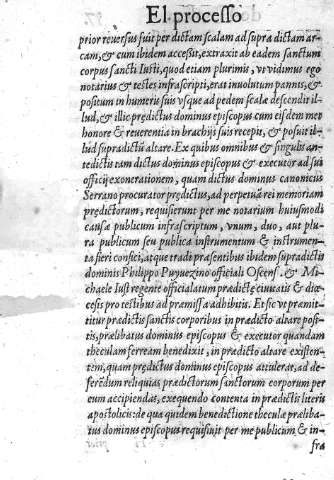 El processo
prior reuersus fuit per dictam scalam ad supra dictam ar-
cam, & cum ibidem accessit, extraxit ab eadem sanctum
corpus sancti Iusti, quod etiam plurimis, vt vidimus ego
notarius & testes infrascripti, erat inuolutum pannis, &
positum in humeris suis vsque ad pedem scalæ descendit il-
lud, & illic prædictus dominus episcopus cum eisdem met
honore & reuerentia in brachijs suis recepit, & posuit il-
lud supradicti altare. Ex quibus omnibus & singulis an-
tedictis tam dictus dominus episcopus & executor ad sui
officij exonerationem, quam dictus dominus canonicus
Serrano procurator prædictus, ad perpetuã rei memoriam
prædictorum, requisierunt per me notarium huiusmodi
causæ publicum infrascriptum, vnum, duo, aut plu-
ra publicum seu publica instrumentum & instrumen-
ta fieri confici, atque tradi præsentibus ibidem supradictis
dominis Philippo Puyuezino officiali Oscens. & Mi-
chaele Iust regente officialatum prædictæ ciuitatis & diœ-
cesis pro testibus ad præmissa adhibitis. Et sic vt præmit-
titur prædictis sanctis corporibus in prædicto altare posi-
tis, prælibatus dominus episcopus & executor quandam
theculam ferream benedixit, in prædicto altare existen-
tem, quam prædictus dominus episcopus attulerat, ad de-
ferēdum reliquias prædictorum sanctorum corporum per
eum accipiendas, exequendo contenta in prædictis literis
apostolicis: de qua quidem benedictione theculæ præliba-
tus dominus episcopus requisiuit per me publicum & in-
fra